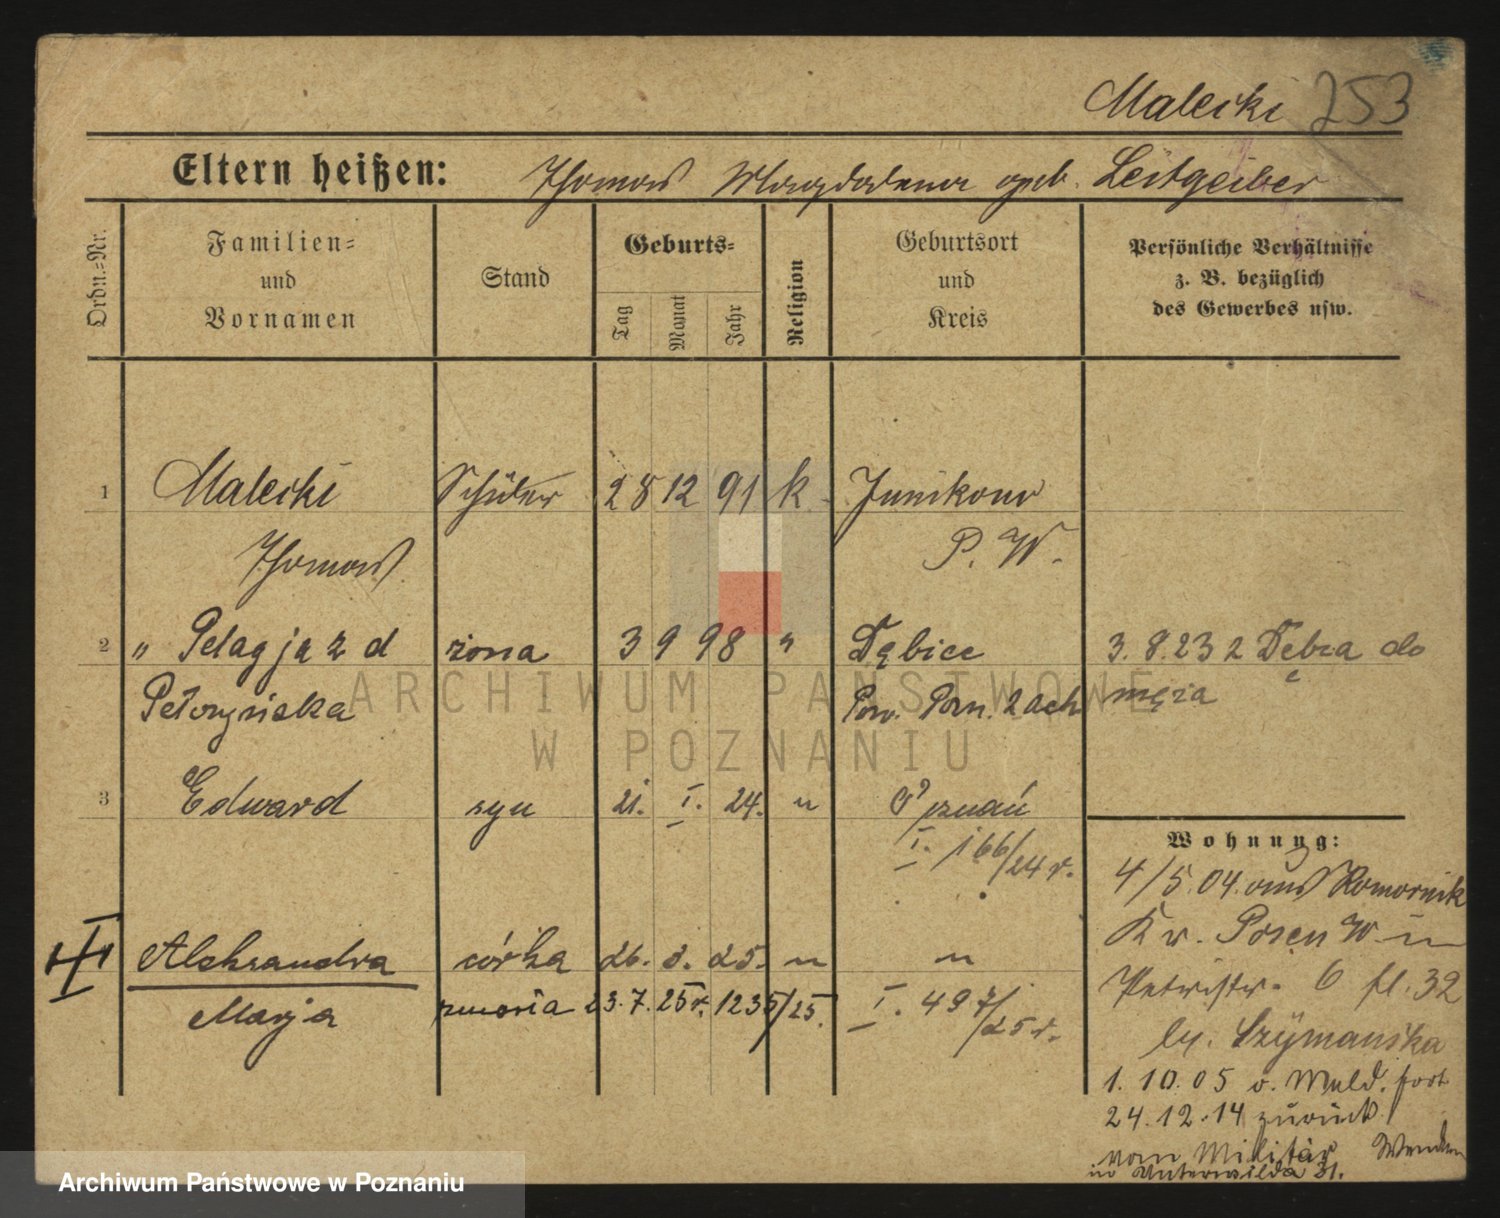 Malecki 253
Eltern heißen: Thomas Magdalena geb. Leitgeiber
Ordn.=Nr.
Familien=
und
Vornamen
Stand
Geburts=
Tag
Monat
Jahr
Religion
Geburtsort
und
Kreis
Persönliche Verhältnisse
z. B. bezüglich
des Gewerbes usw.
1 Malecki Schüler 28 12 91 k. Junikowo
Thomas P. W.
2 " Pelagja z d żona 3 9 98 " Dębiec 3.8.23 z Dębca do
Pow. Pozn. Zach męża
3 Edward syn 21. I. 24. " Poznań
I. 166/24 r.
Wohnung:
4/5.04. aus Komornik
Kr. Posen W in
Aleksandra córka 26. 3. 25. " "
Petristr. 6 fl. 32
Marja zmarła 23.7.25 r. 1235/25. I. 497/25 r.
by. Szÿmańska
1.10.05 o. Meld. fort
24.12.14 zurück
vom Militär Wenden
in Unterwilda 31.
ARCHIWUM PAŃSTWOWE
W POZNANIU
Archiwum Państwowe w Poznaniu